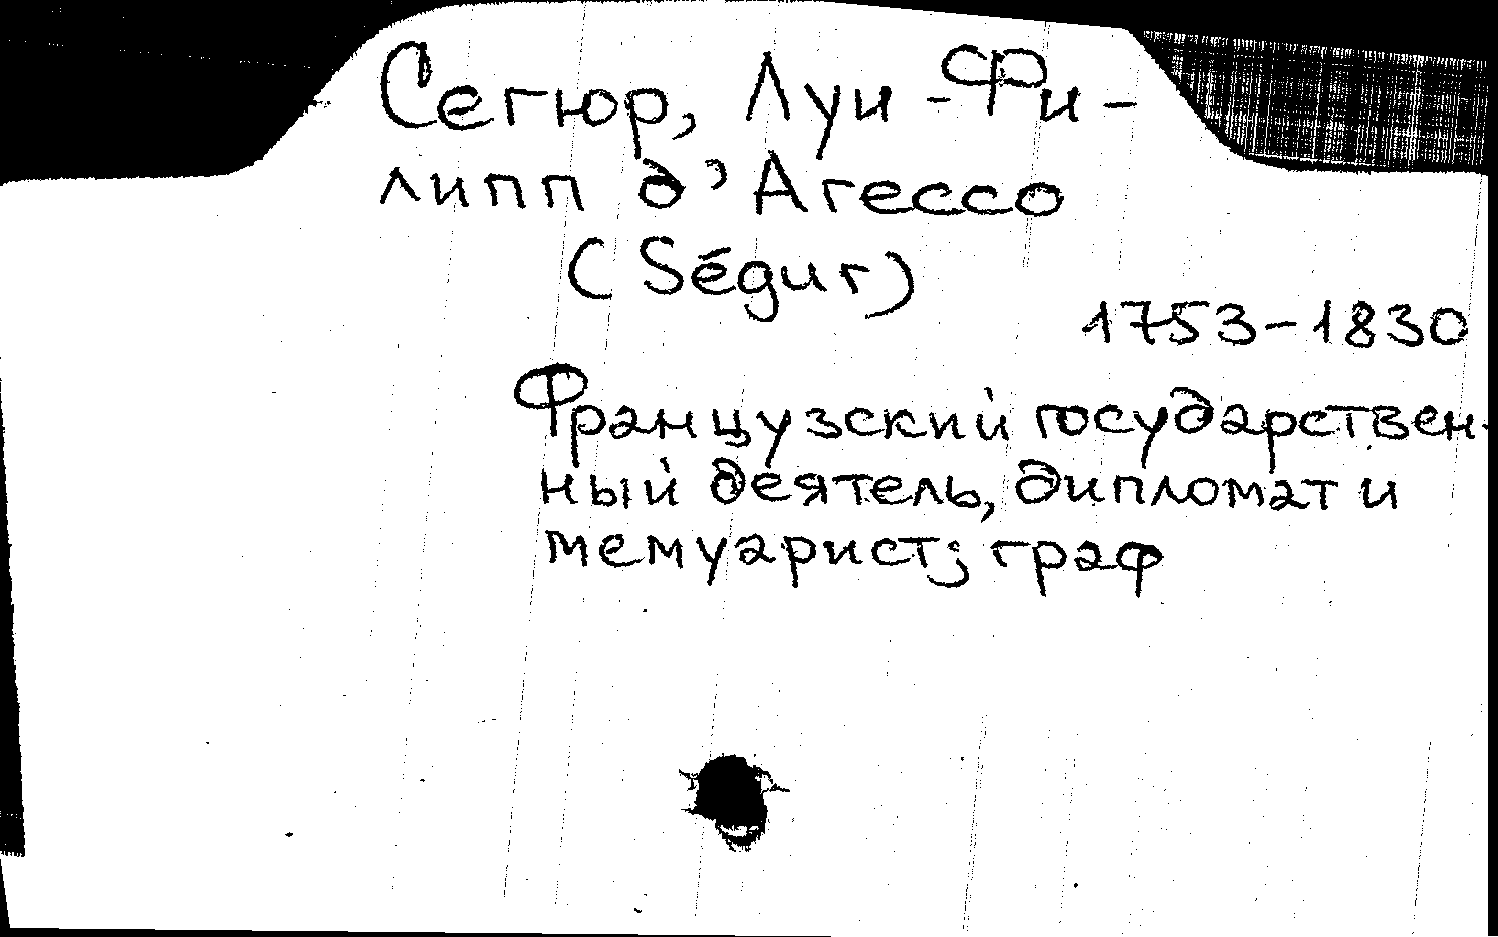 Сегюр, Луи-Фи-
липп д'Агессо
(Ségur)
1753-1830
Французский государствен-
ный деятель, дипломат и
мемуарист; граф